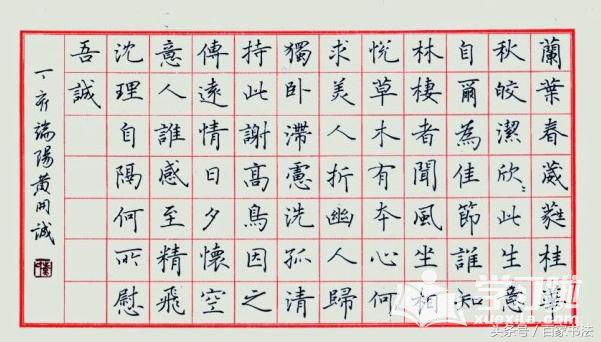 蘭葉春葳蕤桂華
秋皎潔欣〻此生意
自爾為佳節誰知
林棲者聞風坐相
悅草木有本心何
求美人折幽人歸
獨卧滯慮洗孤清
持此謝高鳥因之
傳遠情日夕懷空
意人誰感至精飛
沈理自隔何所慰
吾誠
丁亥端陽黄開誠
学习啦
xuexila.com
头条号 / 百家书法